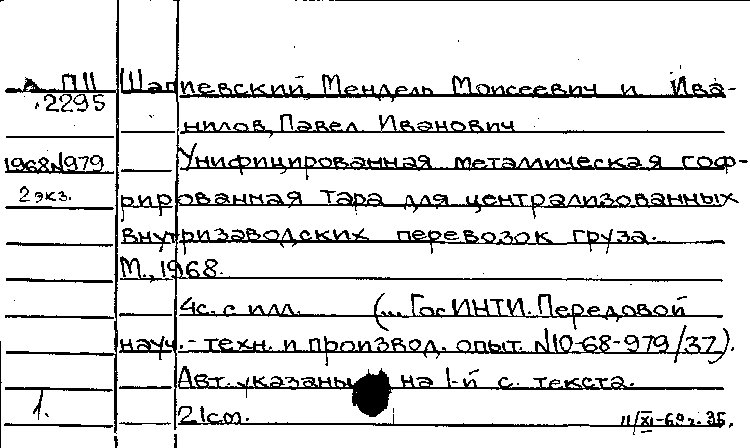 А ПII Шапиевский, Мендель Моисеевич и Ива-
2295
нилов, Павел Иванович
1968N979 Унифицированная металлическая гоф-
2 экз. рированная тара для централизованных
внутризаводских перевозок груза.
М., 1968.
4с. с илл. (... ГосИНТИ. Передовой
науч.-техн. и производ. опыт. N10-68-979/37).
Авт. указаны на 1-й с. текста.
1. 21см. 11/XI-69г.